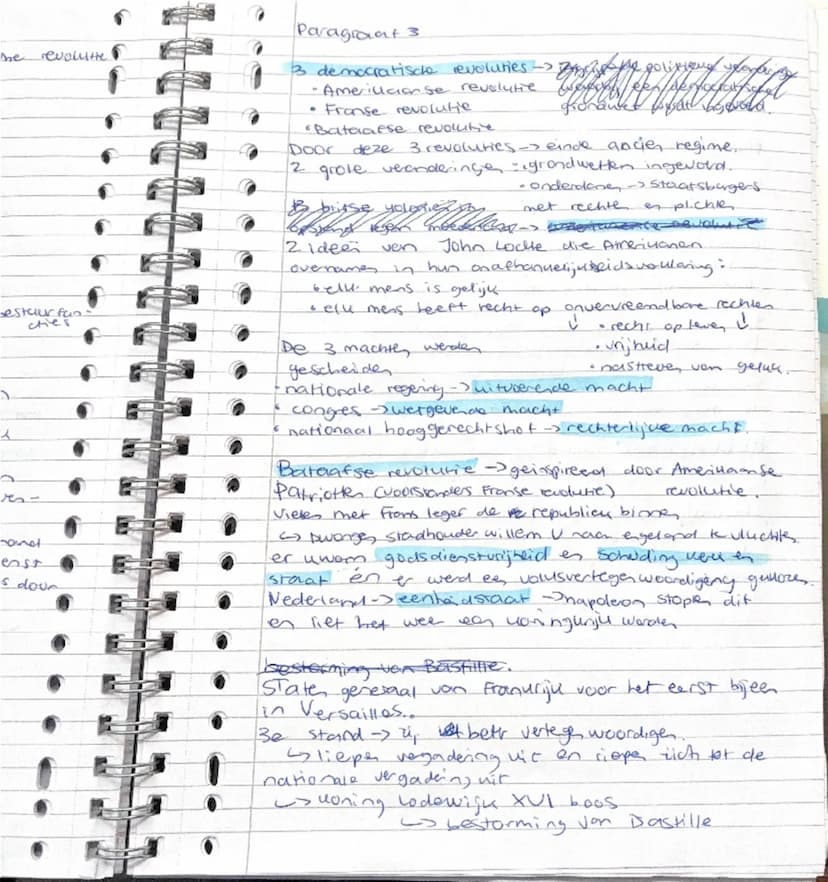 he revolutie
bestuurfun-
cties
ven-
enst
s door
Paragraaf 3
3 democratische revoluties ->
• Amerikaanse revolutie
• Franse revolutie
• Bataafse revolutie
Door deze 3 revoluties -> einde ancien regime.
2 grote veranderingen: • grondwetten ingevoerd.
• onderdanen -> staatsburgers
met rechten en plichten
2 ideeën van John Locke die Amerikanen
overnamen in hun onafhankelijkheidsverklaring:
• elk mens is gelijk
• elk mens heeft recht op onvervreemdbare rechten
↓ • recht op leven ↓
De 3 machten werden • vrijheid
gescheiden • nastreven van geluk.
• nationale regering -> uitvoerende macht
• congres -> wetgevende macht
• nationaal hooggerechtshof -> rechterlijke macht
Bataafse revolutie -> geïnspireerd door Amerikaanse
Patriotten (voorstanders Franse revolutie) revolutie.
vielen met Frans leger de republiek binnen
↳ dwongen stadhouder willem V naar engeland te vluchten.
er kwam godsdienstvrijheid en scheiding kerk en
staat én er werd een volksvertegenwoordiging gekozen.
Nederland -> eenheidstaat -> napoleon stopen dit
en liet het weer een koningkrijk worden
bestorming van Bastille.
Staten generaal van Frankrijk voor het eerst bijeen
in Versailles..
3e stand -> zij betr vertegenwoordigen.
↳ liepen vergadering uit en riepen zich tot de
nationale vergadering uit
↳ koning Lodewijk XVI boos
↳ bestorming van Bastille